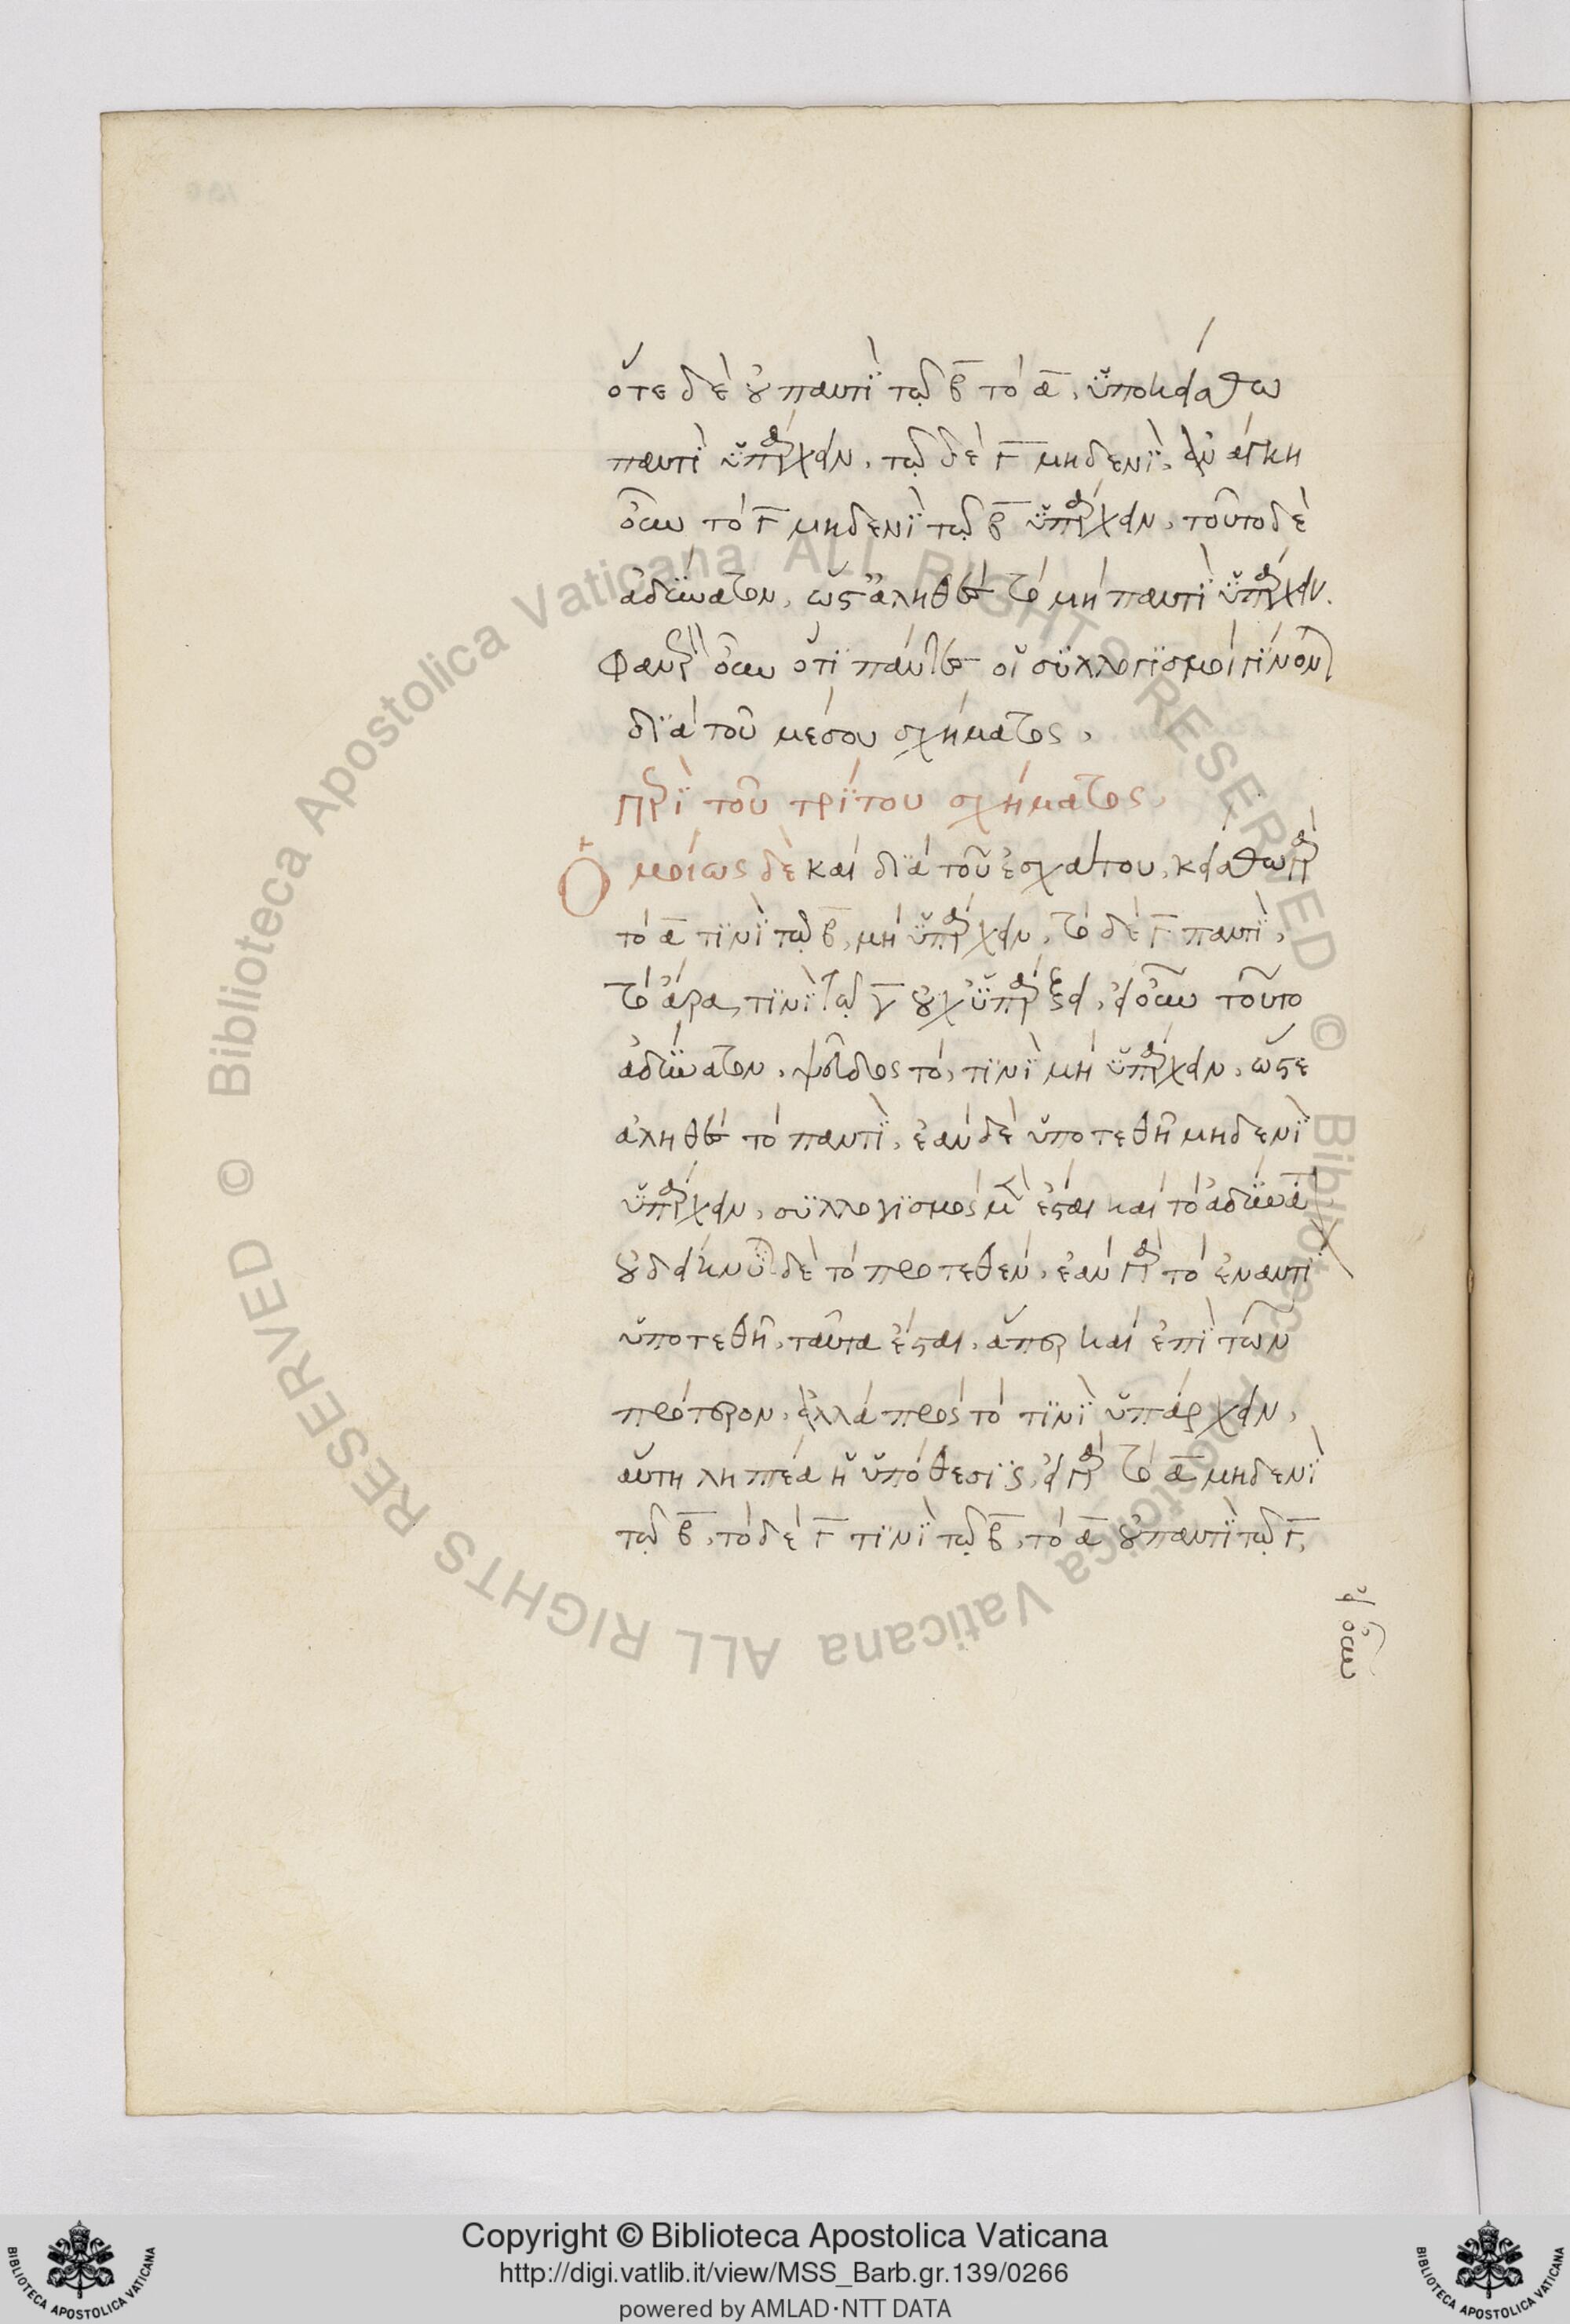 ὅτε δὲ οὐ παντὶ τῷ β τὸ α, ὑποκείσθω
παντὶ ὑπάρχειν, τῷ δὲ Γ μηδενί, ἀνάγκη
οὖν τὸ Γ μηδενὶ τῷ β ὑπάρχειν, τοῦτο δὲ
ἀδύνατον, ὥστ' ἀληθὲς τὸ μὴ παντὶ ὑπάρχειν.
Φανερὸν οὖν ὅτι πάντες οἱ συλλογισμοὶ γίνονται
διὰ τοῦ μέσου σχήματος,
περὶ τοῦ τρίτου σχήματος,
Ὁμοίως δὲ καὶ διὰ τοῦ ἐσχάτου, κείσθω γὰρ
τὸ α τινὶ τῷ β, μὴ ὑπάρχειν, τὸ δὲ Γ παντί,
τὸ α ἄρα, τινὶ τῷ γ οὐχ ὑπάρξει, εἰ οὖν τοῦτο
ἀδύνατον, ψεῦδος τό, τινὶ μὴ ὑπάρχειν, ὥστε
ἀληθὲς τὸ παντί, ἐὰν δὲ ὑποτεθῆ μηδενὶ
ὑπάρχειν, συλλογισμὸς μὲν ἔσται καὶ τὸ ἀδύνατον
οὐ δείκνυται δὲ τὸ προτεθέν, ἐὰν γὰρ τὸ ἐναντίον
ὑποτεθῆ, ταῦτα ἔσται, ἅπερ καὶ ἐπὶ τῶν
πρότερον, ἀλλὰ πρὸς τὸ τινὶ ὑπάρχειν,
αὕτη ληπτέα ἡ ὑπόθεσις, εἰ γὰρ τὸ α μηδενὶ
τῷ β, τὸ δὲ Γ τινὶ τῷ β, τὸ α οὐ παντὶ τῷ Γ,
εἰ οὖν
Copyright © Biblioteca Apostolica Vaticana
http://digi.vatlib.it/view/MSS_Barb.gr.139/0266
powered by AMLAD·NTT DATA